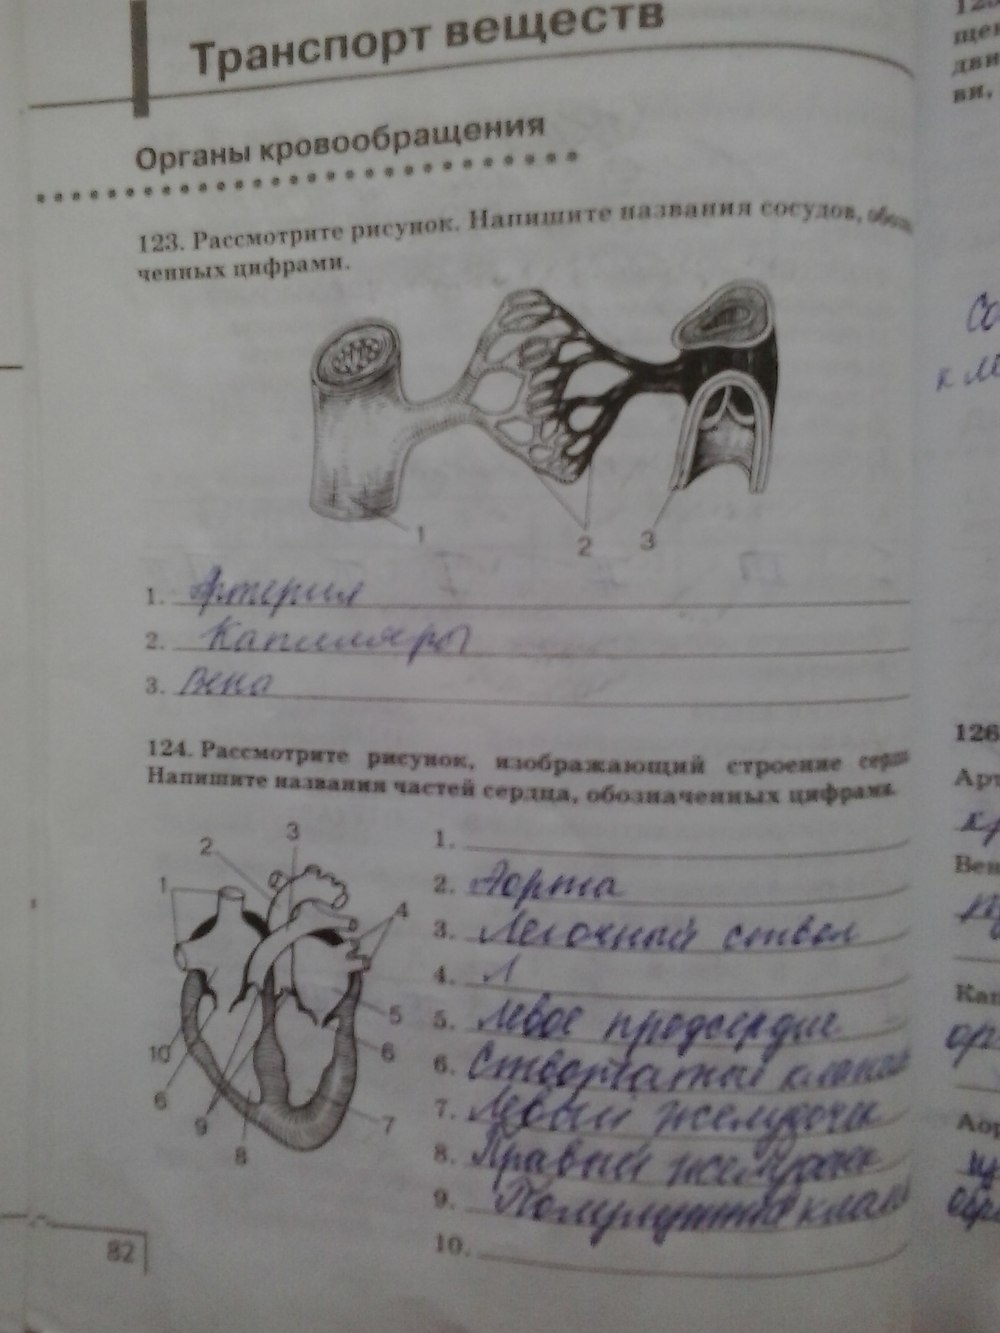 Транспорт веществ
Органы кровообращения
123. Рассмотрите рисунок. Напишите названия сосудов, обозна-
ченных цифрами.
1
2
3
1. Артерия
2. Капилляры
3. Вена
124. Рассмотрите рисунок, изображающий строение сердца
Напишите названия частей сердца, обозначенных цифрами.
3
2
1
4
5
10
6
6
9
7
8
1.
2. Аорта
3. Легочный ствол
4. Л
5. Левое предсердие
6. Створчатый клапан
7. Левый желудочек
8. Правый желудочек
9. Полулунные клап
10.
82
щен
дви
ви,
Со
к
126
Арт
кр
Вен
Кап
орг
Аор